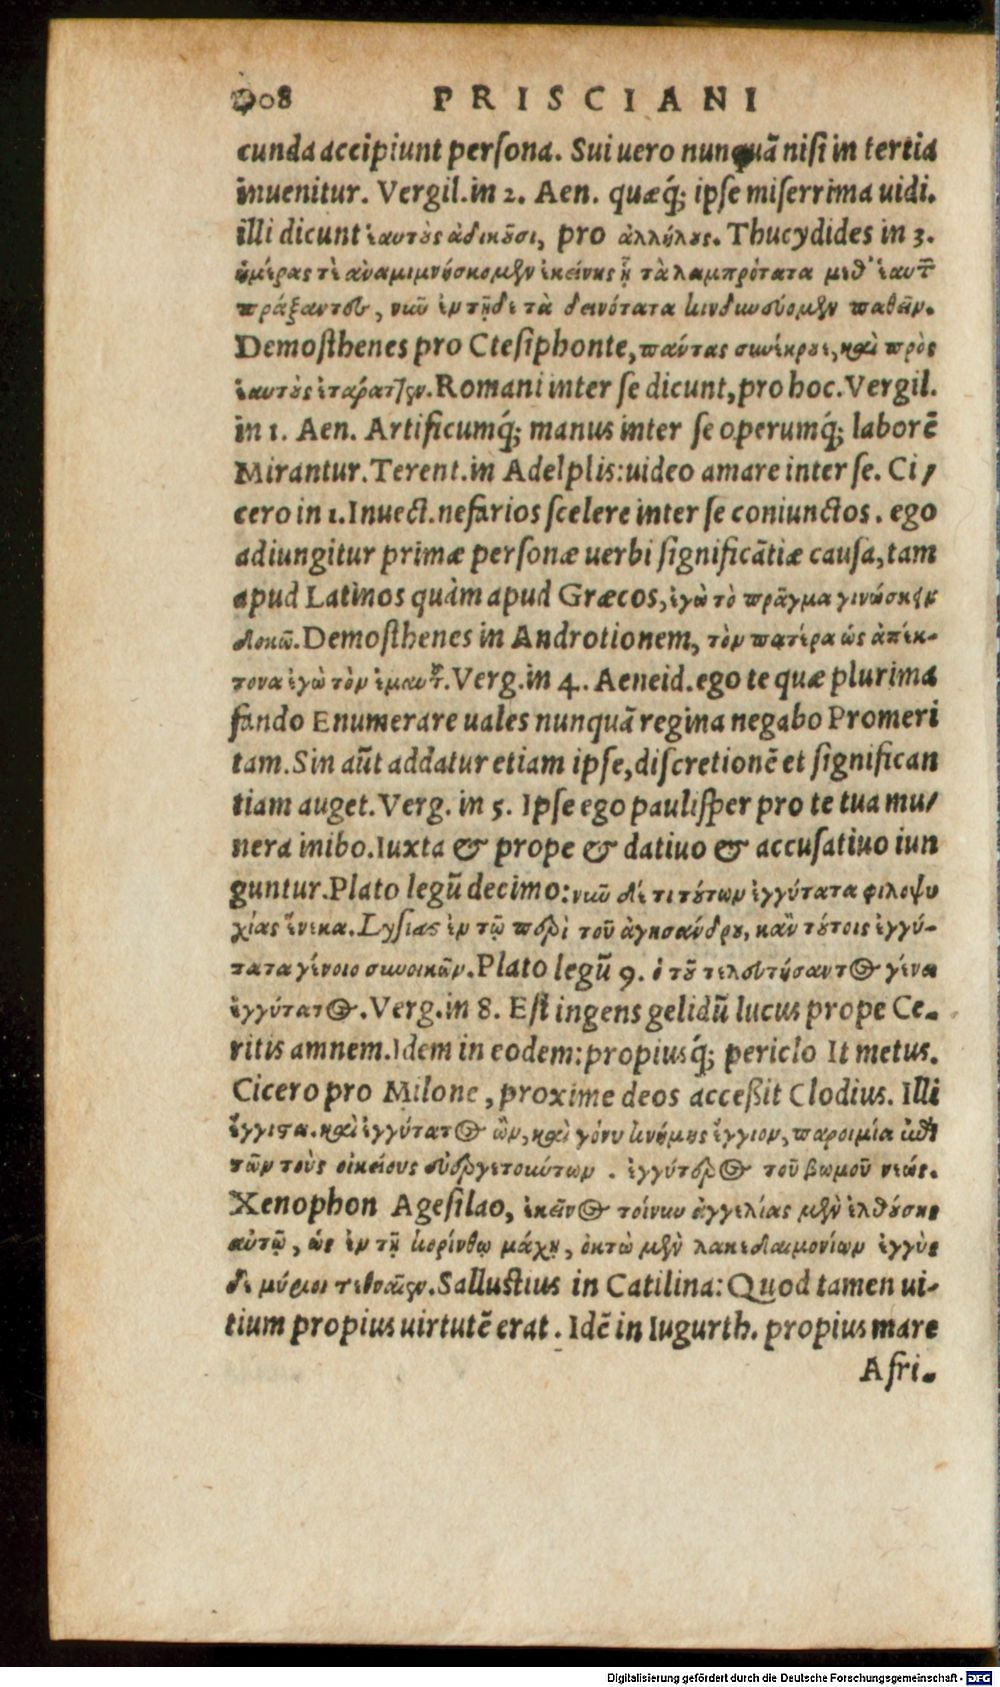 908 PRISCIANI
cunda accipiunt persona. Sui uero nunquã nisi in tertia
inuenitur. Vergil. in 2. Aen. quæq́; ipse miserrima uidi.
illi dicunt ἑαυτοὺς ἀδικοῦσι, pro ἀλλήλους. Thucydides in 3.
ἡμέρας τε ἀναμιμνήσκομεν ἐκείνης ᾗ τὰ λαμπρότατα μεθ᾽ ἑαυτῶν
πράξαντες, νῦν ἐν τῇδε τὰ δεινότατα κινδυνεύομεν παθεῖν.
Demosthenes pro Ctesiphonte, πάντας συνέκρουε, καὶ πρὸς
ἑαυτοὺς ἐτάραττεν. Romani inter se dicunt, pro hoc. Vergil.
in 1. Aen. Artificumq́; manus inter se operumq́; laborẽ
Mirantur. Terent. in Adelplis: uideo amare inter se. Ci/
cero in 1. Inuect. nefarios scelere inter se coniunctos. ego
adiungitur primæ personæ uerbi significãtiæ causa, tam
apud Latinos quàm apud Græcos, ἐγὼ τὸ πρᾶγμα γινώσκειν
δοκῶ. Demosthenes in Androtionem, τὸν πατέρα ὡς ἀπέκ-
τονα ἐγὼ τὸν ἐμαυτοῦ. Verg. in 4. Aeneid. ego te quæ plurima
fando Enumerare uales nunquã regina negabo Promeri
tam. Sin aũt addatur etiam ipse, discretionẽ et significan
tiam auget. Verg. in 5. Ipse ego paulisper pro te tua mu/
nera inibo. Iuxta & prope & datiuo & accusatiuo iun
guntur. Plato legũ decimo: νῦν δέ τι τούτων ἐγγύτατα φιλοψυ
χίας ἕνεκα. Lysias ἐν τῷ περὶ τοῦ ἀγησάνδρου, κἂν τούτοις ἐγγύ-
τατα γένοιο συνοικῶν. Plato legũ 9. ὁ τοῦ τελευτήσαντος γένει
ἐγγύτατος. Verg. in 8. Est ingens gelidũ lucus prope Ce-
ritis amnem. Idem in eodem: propiusq́; periclo It metus.
Cicero pro Milone, proxime deos acceßit Clodius. Illi
ἔγγιστα. καὶ ἐγγύτατος ὢν, καὶ γόνυ κνήμης ἔγγιον, παροιμία ἐπὶ
τῶν τοὺς οἰκείους εὐεργετηκότων. ἐγγύτερος τοῦ βωμοῦ νεώς.
Xenophon Agesilao, ἐκεῖνος τοίνυν ἀγγελίας μὲν ἐλθούσης
αὐτῷ, ὡς ἐν τῇ κορίνθῳ μάχῃ, ὀκτὼ μὲν λακεδαιμονίων ἐγγὺς
δὲ μύριοι τεθναῖεν. Sallustius in Catilina: Quod tamen ui-
tium propius uirtutẽ erat. Idẽ in Iugurth. propius mare
Afri-
Digitalisierung gefördert durch die Deutsche Forschungsgemeinschaft - DFG